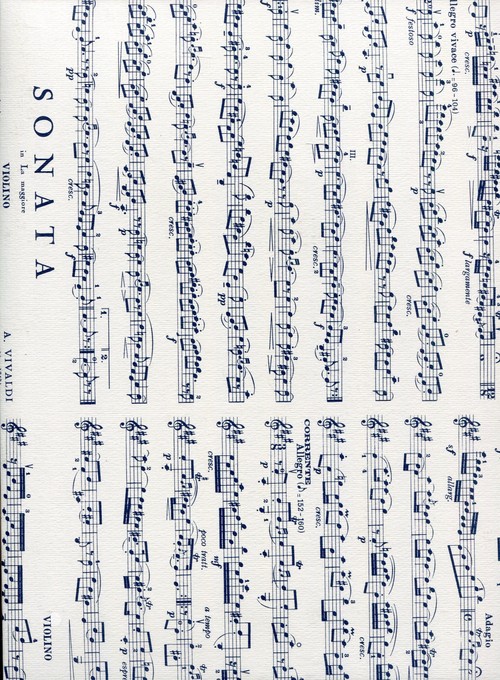 cresc.
p
f
f largamente
llegro vivace (♩=96-104)
f festoso
p
cresc.
p
im.
III.
p
cresc.
f
p
f
pp
cresc.
f
p
f
pp
cresc.
f
1. 2.
SONATA
in La maggiore
VIOLINO
A. VIVALDI
Adagio
sf
allarg.
cresc.
p
CORRENTE
Allegro (♩=152-160)
cresc.
p
p
cresc.
mf
poco tratt.
a tempo
p
p
pp
p
espr
VIOLINO